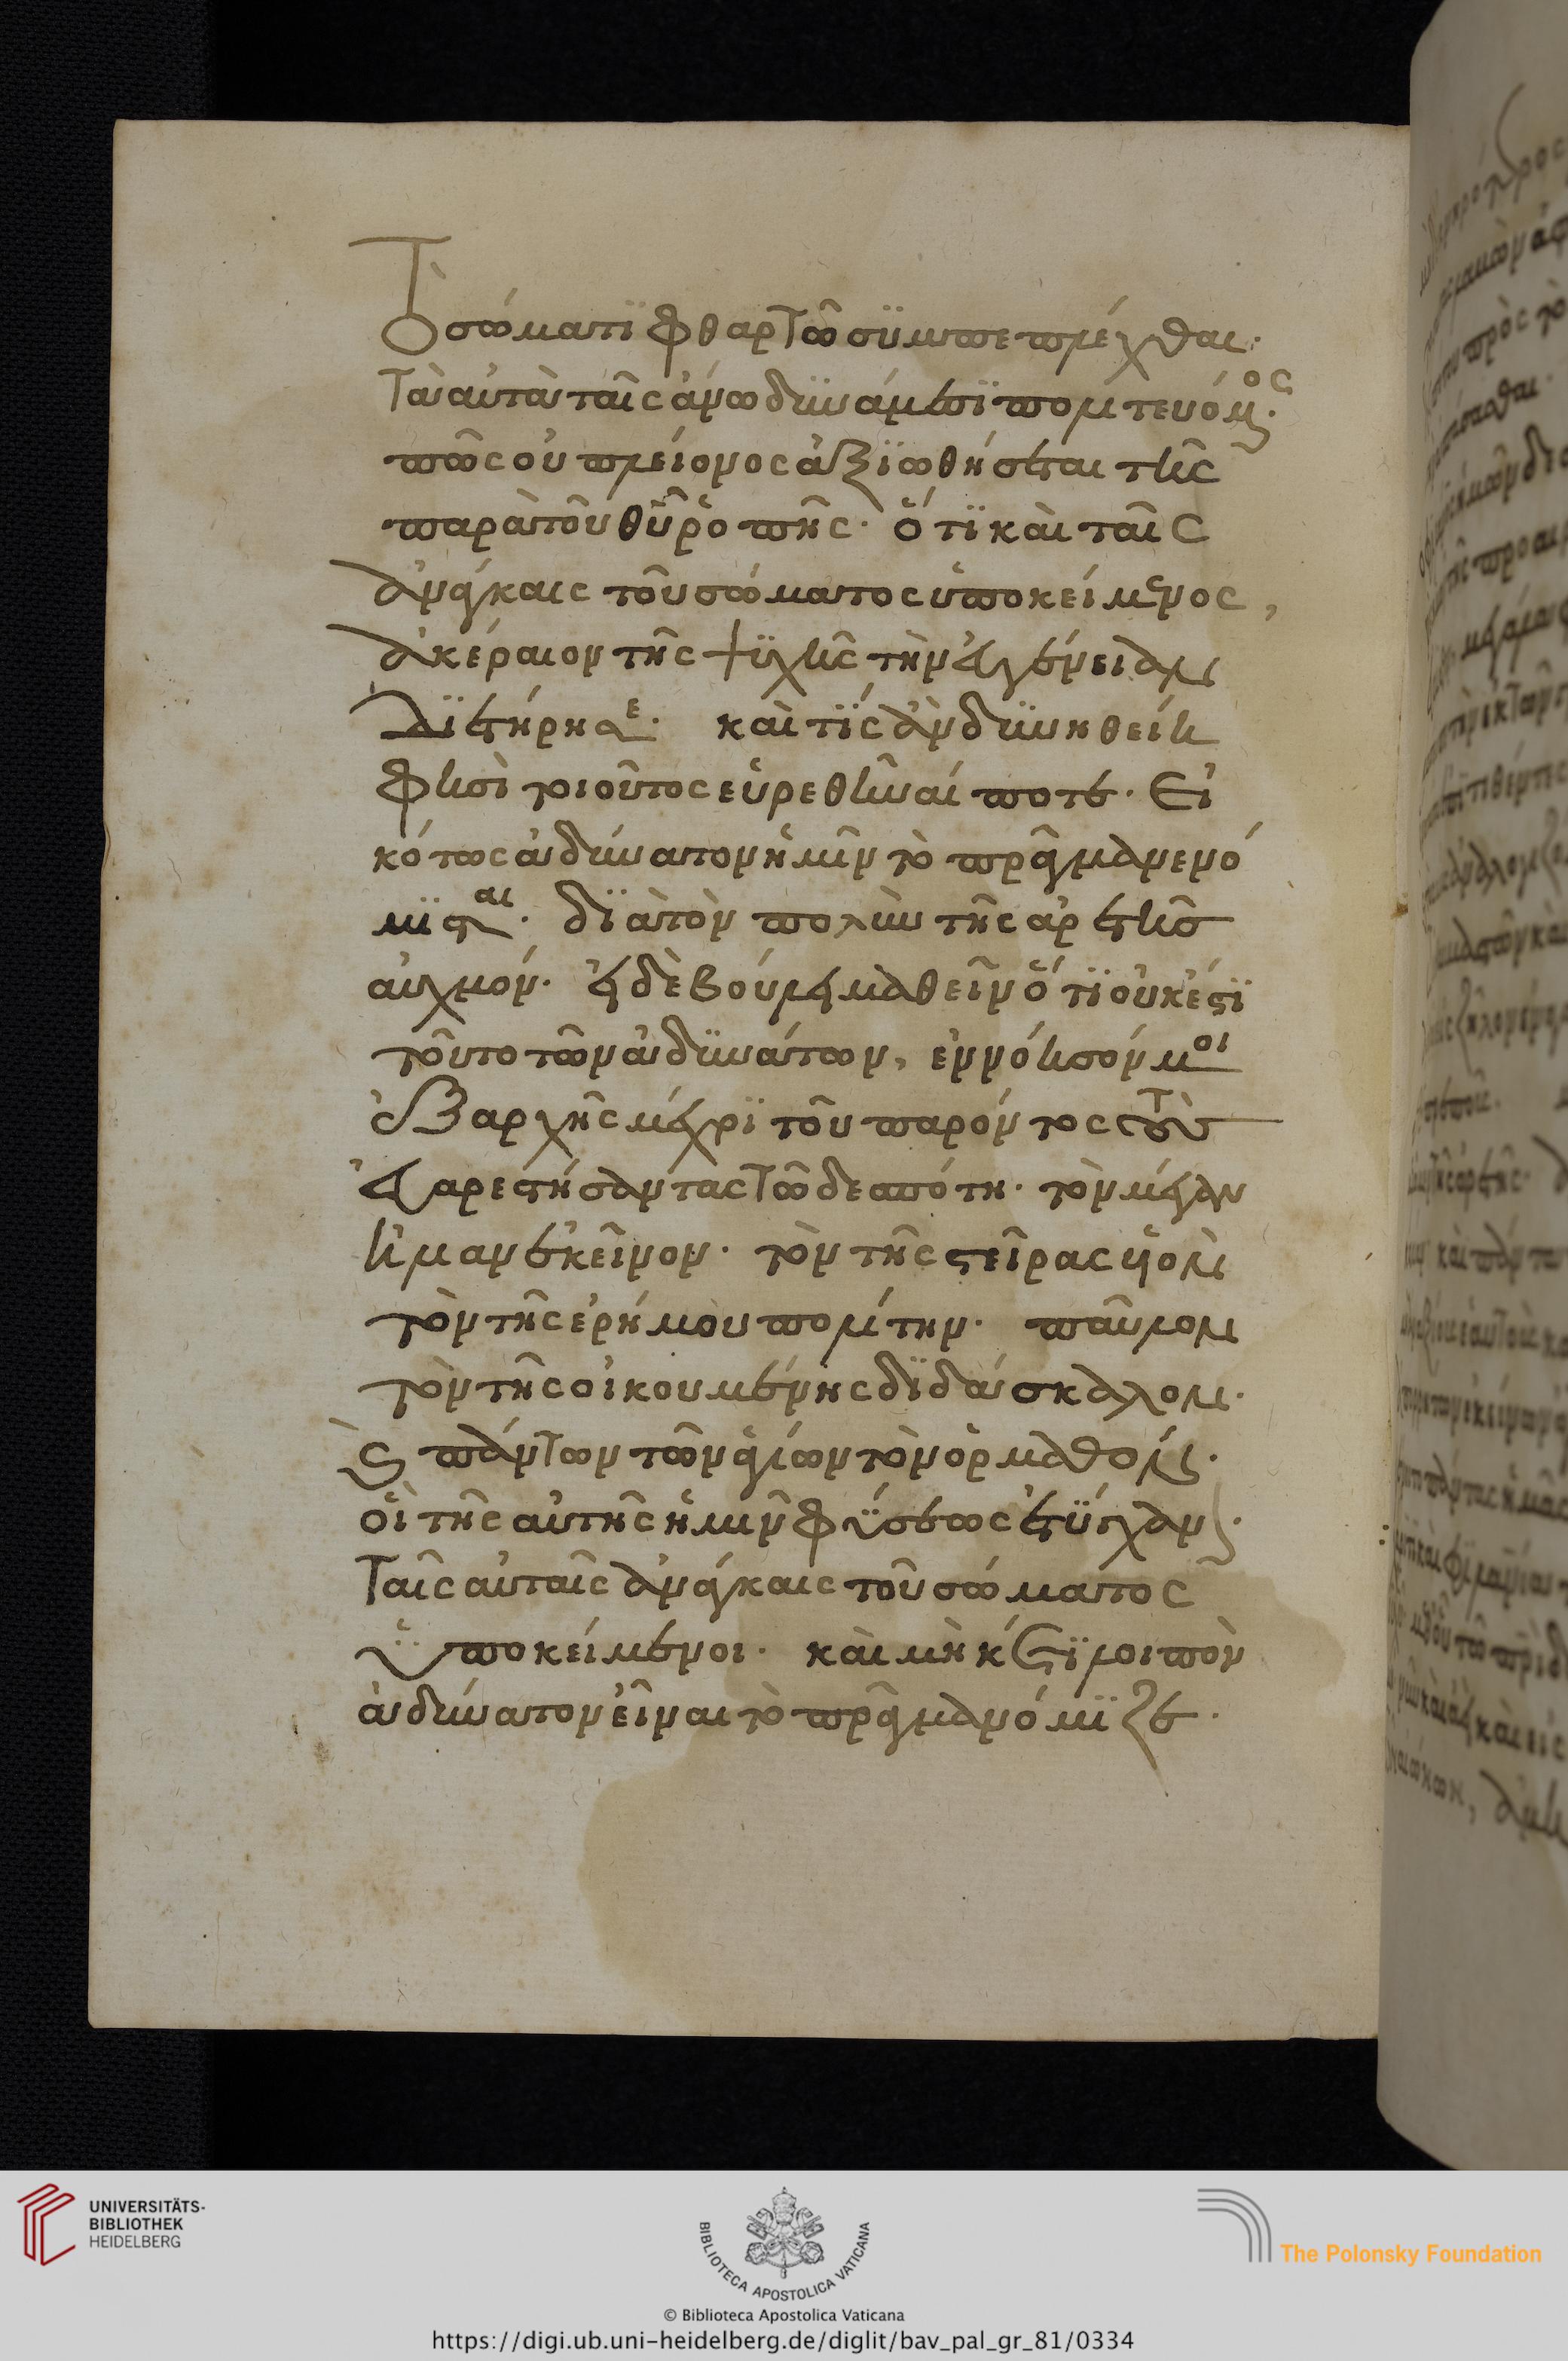 Τὸ σώματι φθαρτῶ συμπεπλέχθαι·
ταὐτὰ ταῖς ἄνω δυνάμεσι πολιτευόμενος·
πῶς οὐ πλείονος ἀξιωθήσεται τῆς
παρὰ τοῦ θῦ ῥοπῆς· ὅτι καὶ ταῖς
ἀνάγκαις τοῦ σώματος ὑποκείμενος,
ἀκέραιον τῆς ψυχῆς τὴν εὐγένειαν
διετήρησε· καὶ τίς ἂν δυνηθείη
φησὶ τοιοῦτος εὑρεθῆναί ποτε· Εἰ
κότως ἀδύνατον ἡμῖν τὸ πρᾶγμα νενό
μισται· διὰ τὸν πολὺν τῆς ἀρετῆς
αὐχμόν· εἰ δὲ βούλει μαθεῖν ὅτι οὐκ ἔστι
τοῦτο τῶν ἀδυνάτων, ἐννόησόν μοι
ἐξ ἀρχῆς μέχρι τοῦ παρόντος τοὺς
εὐαρεστήσαντας τῶ δεσπότη· τὸν μέγαν
ἠλίαν ἐκεῖνον· τὸν τῆς στείρας υἱὸν
τὸν τῆς ἐρήμου πολίτην· παῦλον
τὸν τῆς οἰκουμένης διδάσκαλον·
καὶ πάντων τῶν ἁγίων τὸν ὁρμαθόν·
οἳ τῆς αὐτῆς ἡμῖν φύσεως ἔτυχαν·
ταῖς αὐταῖς ἀνάγκαις τοῦ σώματος
ὑποκείμενοι· καὶ μὴκέτι λοιπὸν
ἀδύνατον εἶναι τὸ πρᾶγμα νόμιζε·
UNIVERSITÄTS-
BIBLIOTHEK
HEIDELBERG
BIBLIOTECA APOSTOLICA VATICANA
The Polonsky Foundation
© Biblioteca Apostolica Vaticana
https://digi.ub.uni-heidelberg.de/diglit/bav_pal_gr_81/0334